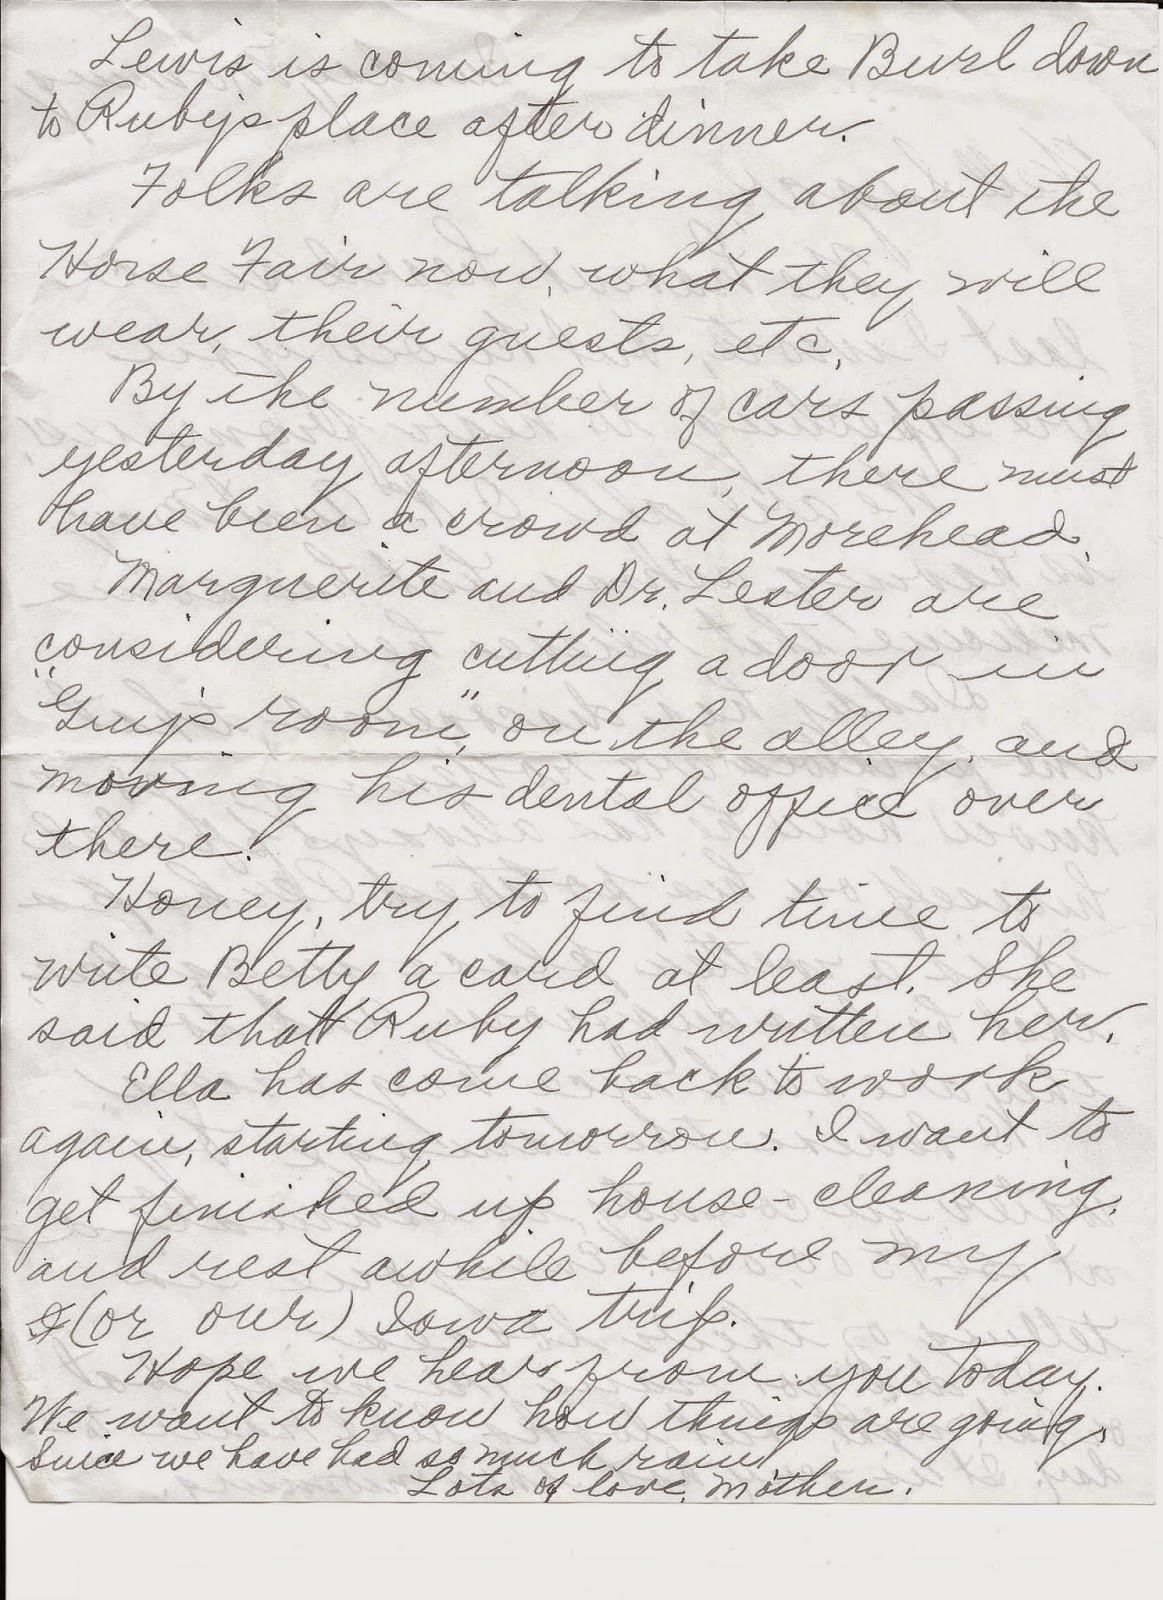 Lewis is coming to take Burl down
to Ruby's place after dinner.
Folks are talking about the
Horse Fair now, what they will
wear, their guests, etc.
By the number of cars passing
yesterday afternoon, there must
have been a crowd at Morehead.
Marguerite and Dr. Lester are
considering cutting a door in
"Guy's room", on the alley, and
moving his dental office over
there.
Honey, try to find time to
write Betty a card at least. She
said that Ruby had written her.
Ella has come back to work
again, starting tomorrow. I want to
get finished up house-cleaning,
and rest awhile before my
(or our) Iowa trip.
Hope we hear from you today.
We want to know how things are going,
Since we have had so much rain.
Lots of love, Mother.